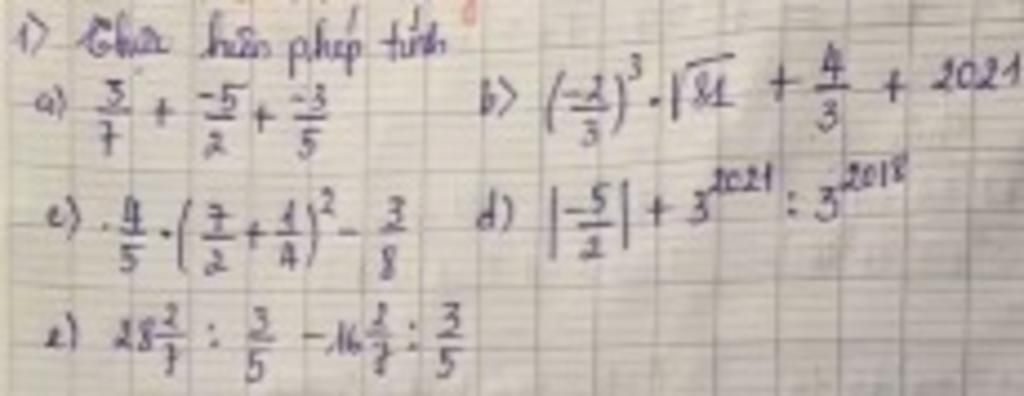 1) Thực hiện phép tính
a) 3/7 + -5/2 + -3/5 b) (-2/3)^3 . √81 + 4/3 + 2021
c) 4/5 . (7/2 + 1/4)^2 - 3/8 d) |-5/2| + 3^2021 : 3^2018
e) 28 2/7 : 3/5 - 16 2/7 : 3/5